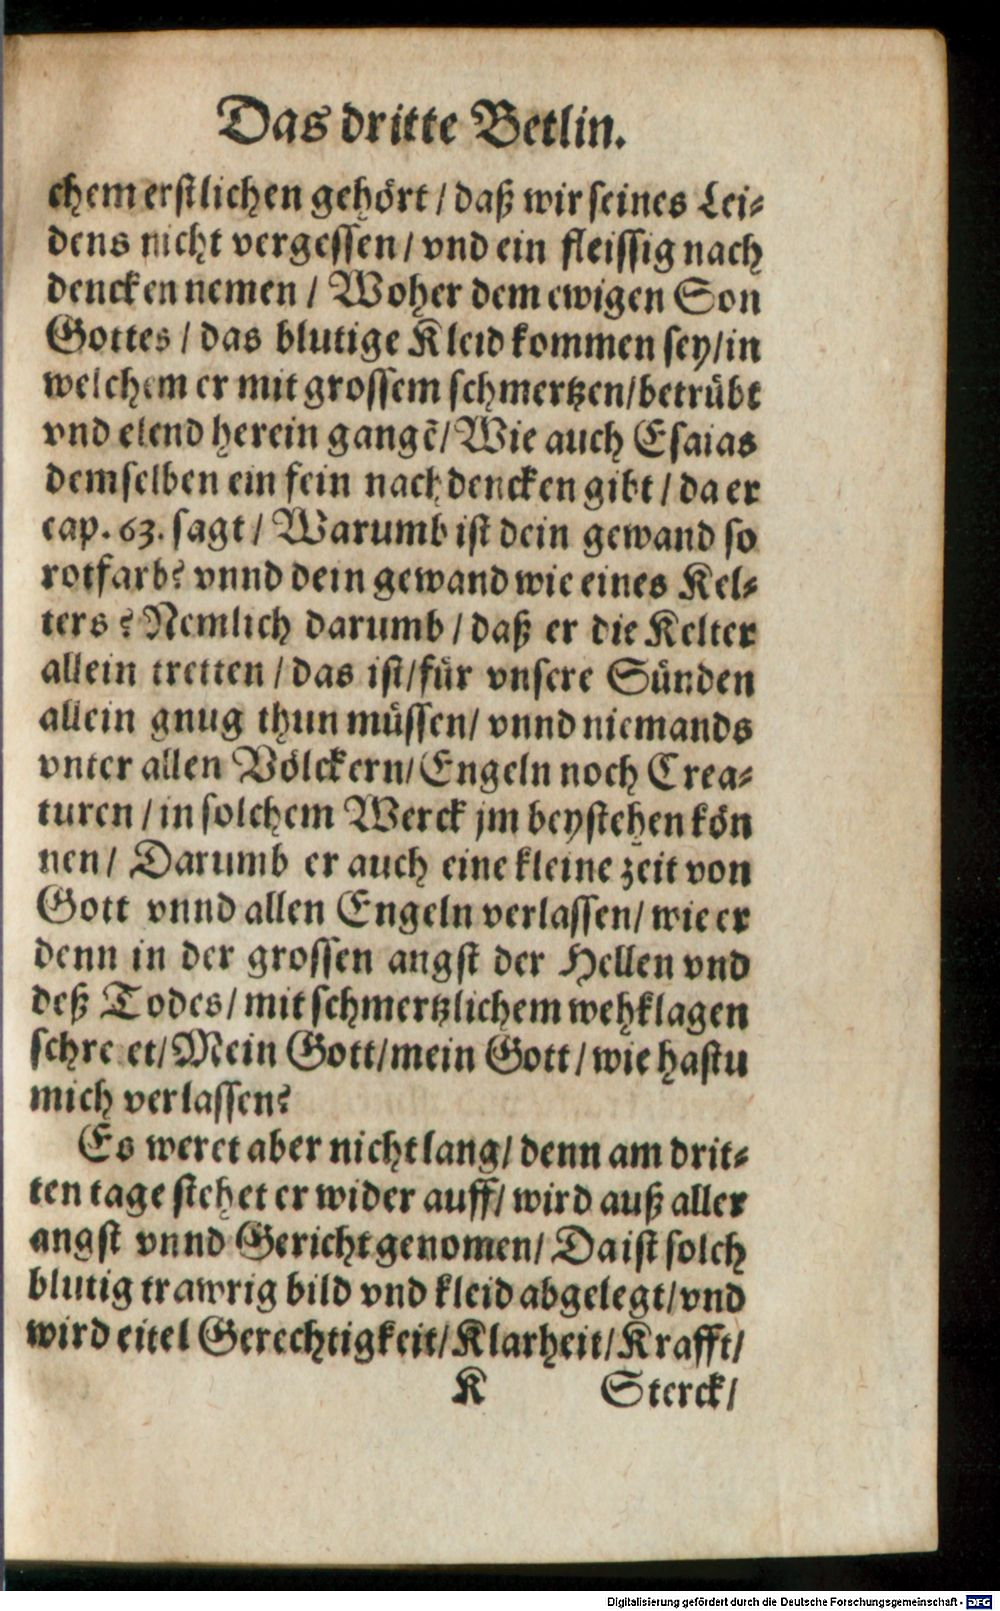 Das dritte Betlin.
chem erstlichen gehört / daß wir seines Lei-
dens nicht vergessen / vnd ein fleissig nach
dencken nemen / Woher dem ewigen Son
Gottes / das blutige Kleid kommen sey / in
welchem er mit grossem schmertzen / betrübt
vnd elend herein gangẽ / Wie auch Esaias
demselben ein fein nachdencken gibt / da er
cap. 63. sagt / Warumb ist dein gewand so
rotfarb? vnnd dein gewand wie eines Kel-
ters? Nemlich darumb / daß er die Kelter
allein tretten / das ist / für vnsere Sünden
allein gnug thun müssen / vnnd niemands
vnter allen Völckern / Engeln noch Crea-
turen / in solchem Werck jm beystehen kön
nen / Darumb er auch eine kleine zeit von
Gott vnnd allen Engeln verlassen / wie er
denn in der grossen angst der Hellen vnd
deß Todes / mit schmertzlichem wehklagen
schreiet / Mein Gott / mein Gott / wie hastu
mich verlassen?
Es weret aber nicht lang / denn am drit-
ten tage stehet er wider auff / wird auß aller
angst vnnd Gericht genomen / Da ist solch
blutig trawrig bild vnd kleid abgelegt / vnd
wird eitel Gerechtigkeit / Klarheit / Krafft /
K Sterck /
Digitalisierung gefördert durch die Deutsche Forschungsgemeinschaft - DFG